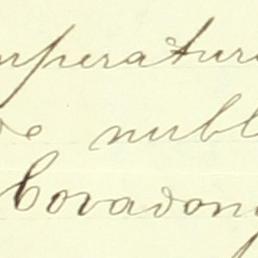 mperatura
de nubl
Covadong